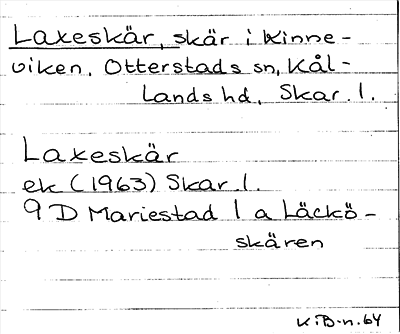 Laxeskär, skär i Kinne-
viken, Otterstads sn, Kål-
lands hd, Skar. l.
Laxeskär
ek (1963) Skar. l.
9 D Mariestad 1 a Läckö-
skären
K:B-n. 64